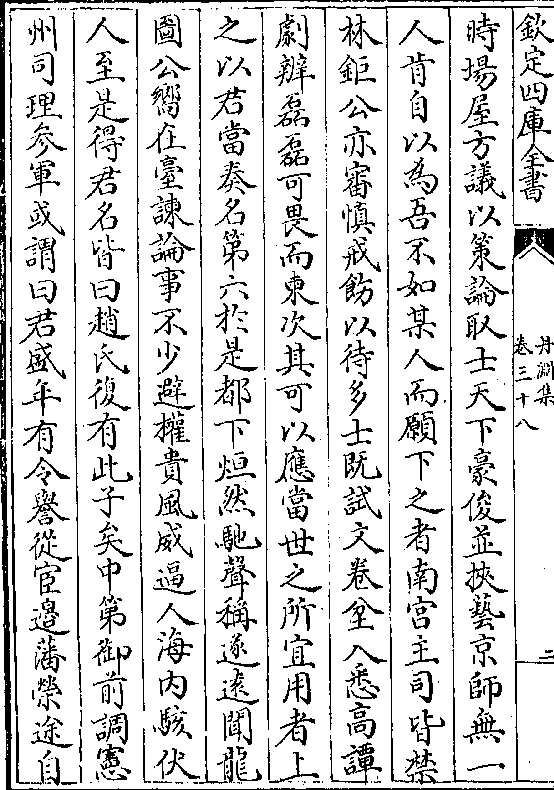 欽定四庫全書
丹淵集
卷三十八
二
時場屋方議以策論取士天下豪俊並挾藝京師無一
人肯自以為吾不如某人而願下之者南宫主司皆禁
林鉅公亦審慎戒飭以待多士既試文卷坌入悉高譚
劇辯磊磊可畏而東次其可以應當世之所宜用者上
之以君當奏名第六於是都下烜然馳聲稱遂遠聞龍
圖公嚮在臺諫論事不少避權貴風威逼人海内駭伏
人至是得君名皆曰趙氏復有此子矣中第御前調憲
州司理參軍或謂曰君盛年有令譽從宦邉藩榮途自